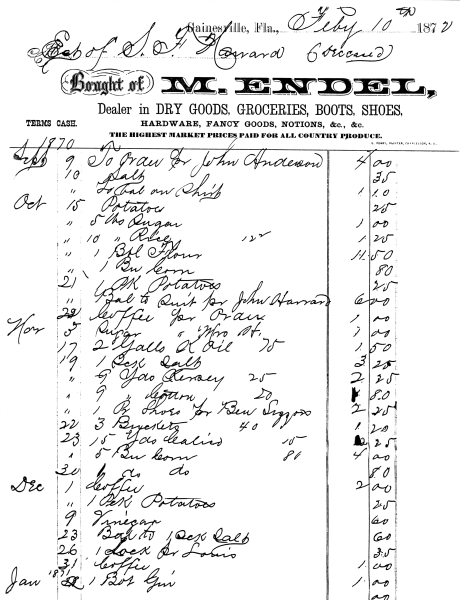 Gainesville, Fla., Feby 10th 1872
Est of S. F. Harrard (deceased)
Bought of M. ENDEL,
Dealer in DRY GOODS, GROCERIES, BOOTS, SHOES,
TERMS CASH. HARDWARE, FANCY GOODS, NOTIONS, &c., &c.
THE HIGHEST MARKET PRICES PAID FOR ALL COUNTRY PRODUCE.
1870
Sept 9 To Order for John Anderson 4 00
10 Salt 35
" To Bal on Shirt 1 10
Oct 15 Potatoes 25
" 5 lbs Sugar 1 00
" 10 " Rice 12½ 1 25
" 1 Bbl Flour 11 50
" 1 Bu Corn 80
21 1 Pk Potatoes 25
" Bal to Suit pr John Harrard 6 00
22 Coffee pr Order 1 00
Nov 5 Sugar " Mrs H. 1 00
17 2 Galls K Oil 75 1 50
19 1 Sck Salt 3 25
" 9 Yds Kersey 25 2 25
" 9 " Cotton 20 1 80
" 1 P Shoes for Ben 2 25
22 3 Buckets 40 1 20
23 15 Yds Calico 15 2 25
" 5 Bu Corn 80 4 00
30 1 do do 80
Dec 1 Coffee 2 00
" 1 Pck Potatoes 25
9 Vinegar 60
23 Bal to 1 Sck Salt 60
26 1 Lock pr Louis 35
31 Coffee 1 00
Jan '71 1 Bot Gin 1 00
00